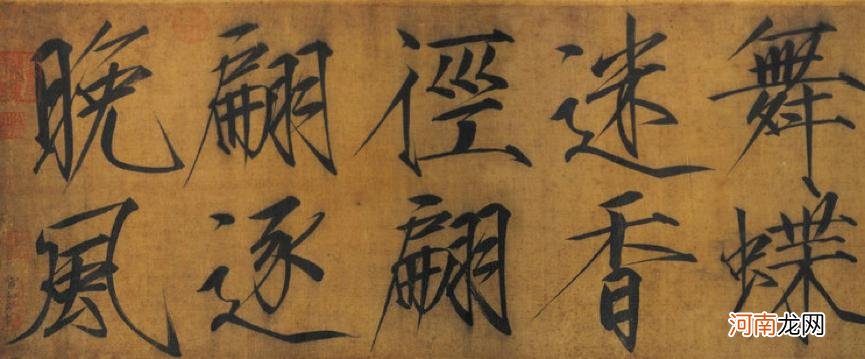 舞蝶
迷香
徑翩
翩逐
晚風
河南龙网